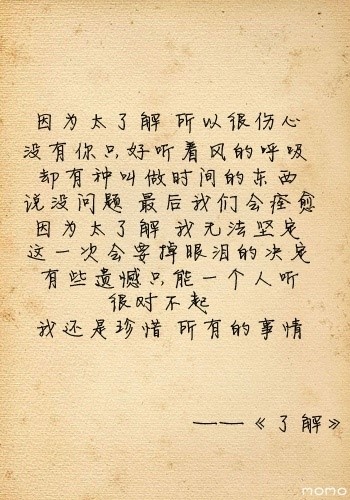 因为太了解 所以很伤心
没有你只好听着风的呼吸
却有种叫做时间的东西
说没问题 最后我们会痊愈
因为太了解 我无法坚定
这一次会要掉眼泪的决定
有些遗憾只能一个人听
很对不起
我还是珍惜 所有的事情
——《了解》
momo